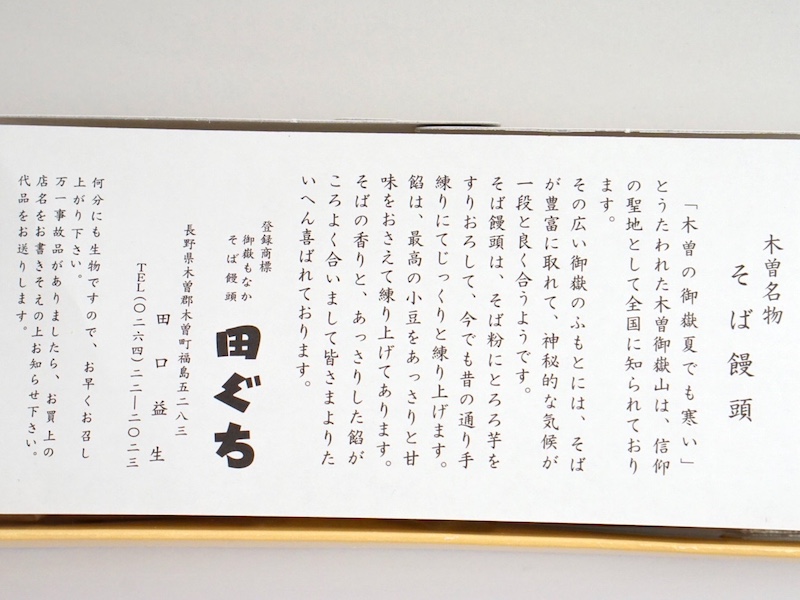 木曽名物
そば饅頭
「木曽の御嶽夏でも寒い」
とうたわれた木曽御嶽山は、信仰
の聖地として全国に知られており
ます。
その広い御嶽のふもとには、そば
が豊富に取れて、神秘的な気候が
一段と良く合うようです。
そば饅頭は、そば粉にとろろ芋を
すりおろして、今でも昔の通り手
練りにてじっくりと練り上げます。
餡は、最高の小豆をあっさりと甘
味をおさえて練り上げてあります。
そばの香りと、あっさりした餡が
ころよく合いまして皆さまよりた
いへん喜ばれております。
登録商標
御嶽もなか
そば饅頭
田ぐち
長野県木曽郡木曽町福島五二八三
田口益生
TEL(〇二六四)二二―二〇二三
何分にも生物ですので、お早くお召し
上がり下さい。
万一事故品がありましたら、お買上の
店名をお書きそえの上お知らせ下さい。
代品をお送りします。